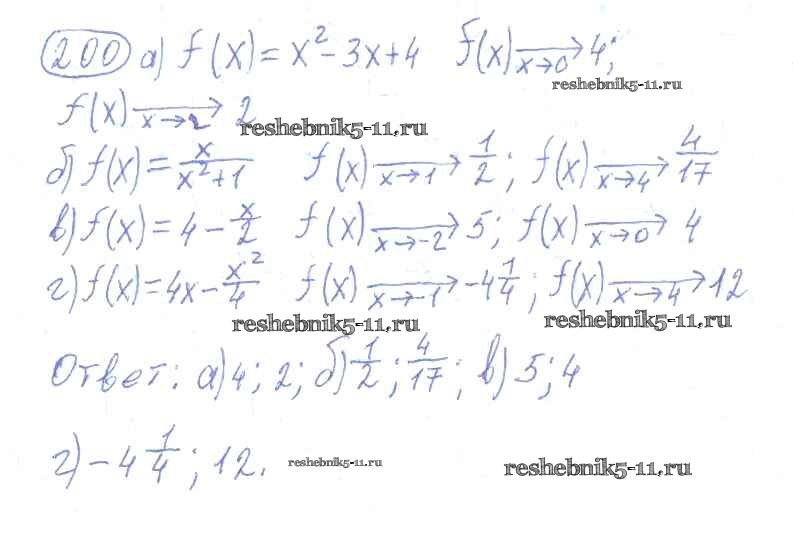 200 а) f(x) = x² - 3x + 4 f(x) →x→0 4;
reshebnik5-11.ru
f(x) →x→2 2
reshebnik5-11.ru
б) f(x) = x/(x²+1) f(x) →x→1 1/2; f(x) →x→4 4/17
в) f(x) = 4 - x/2 f(x) →x→-2 5; f(x) →x→0 4
г) f(x) = 4x - x²/4 f(x) →x→-1 -4 1/4; f(x) →x→4 12
reshebnik5-11.ru reshebnik5-11.ru
Ответ: а) 4; 2; б) 1/2; 4/17; в) 5; 4
г) -4 1/4; 12.
reshebnik5-11.ru reshebnik5-11.ru